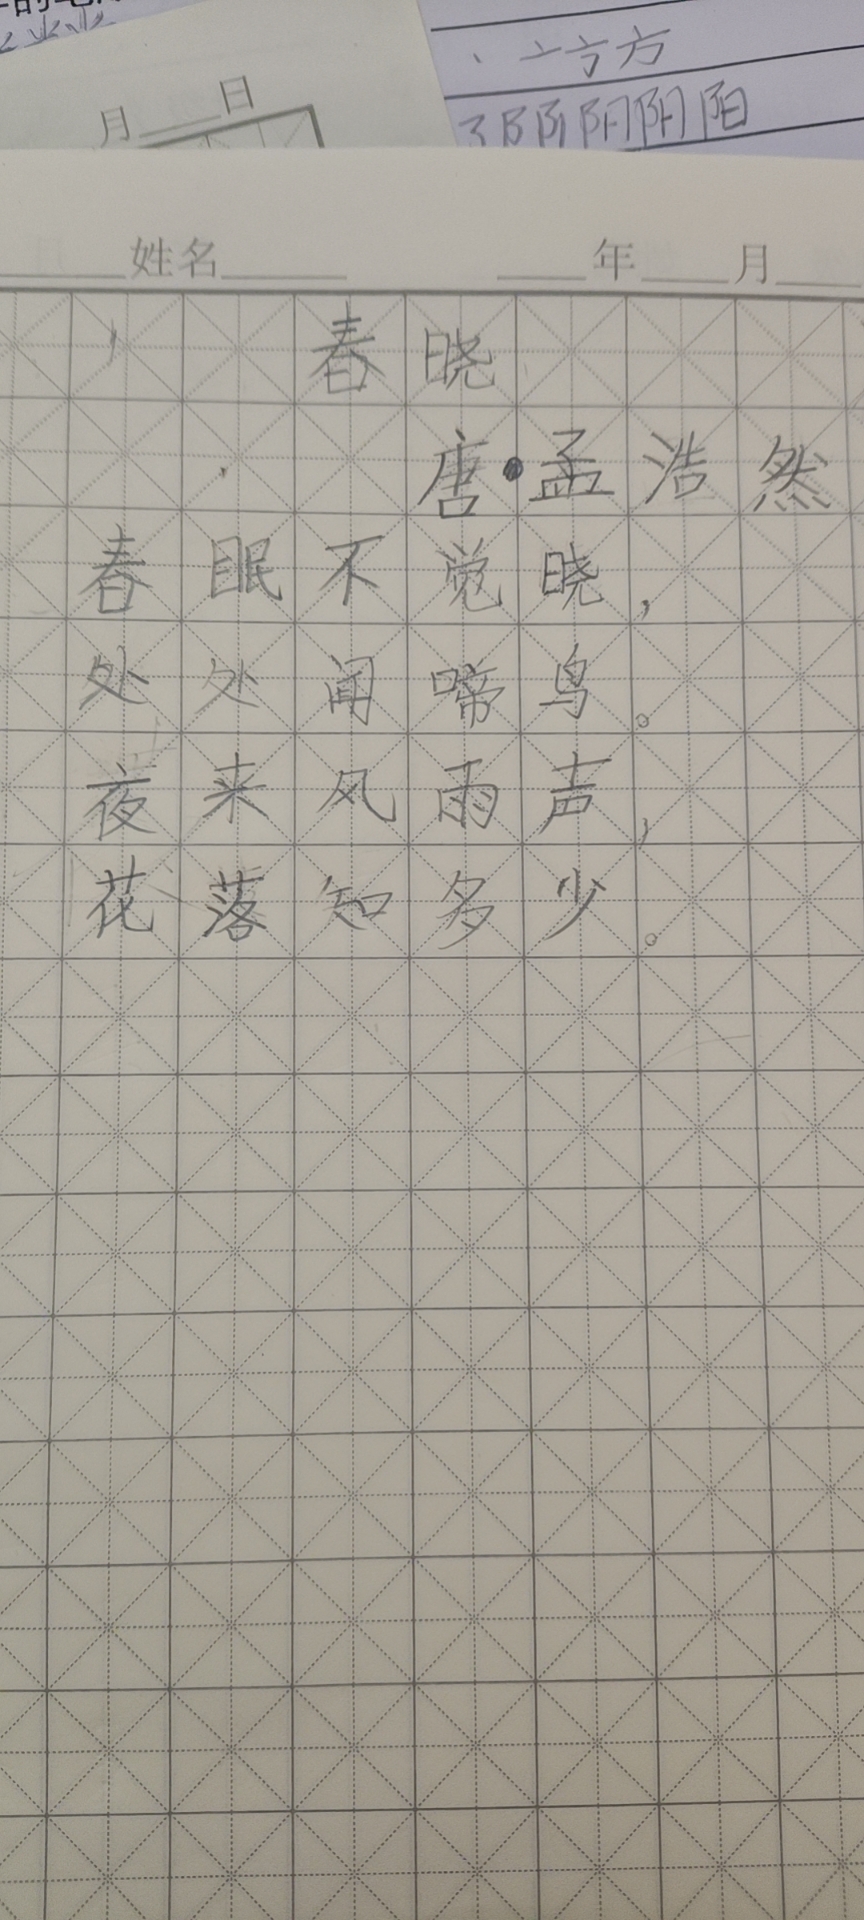 月 日
、 亠 亍 方
阝 阝 阴 阴 阳
姓名 年 月
春晓
唐•孟浩然
春眠不觉晓，
处处闻啼鸟。
夜来风雨声，
花落知多少。